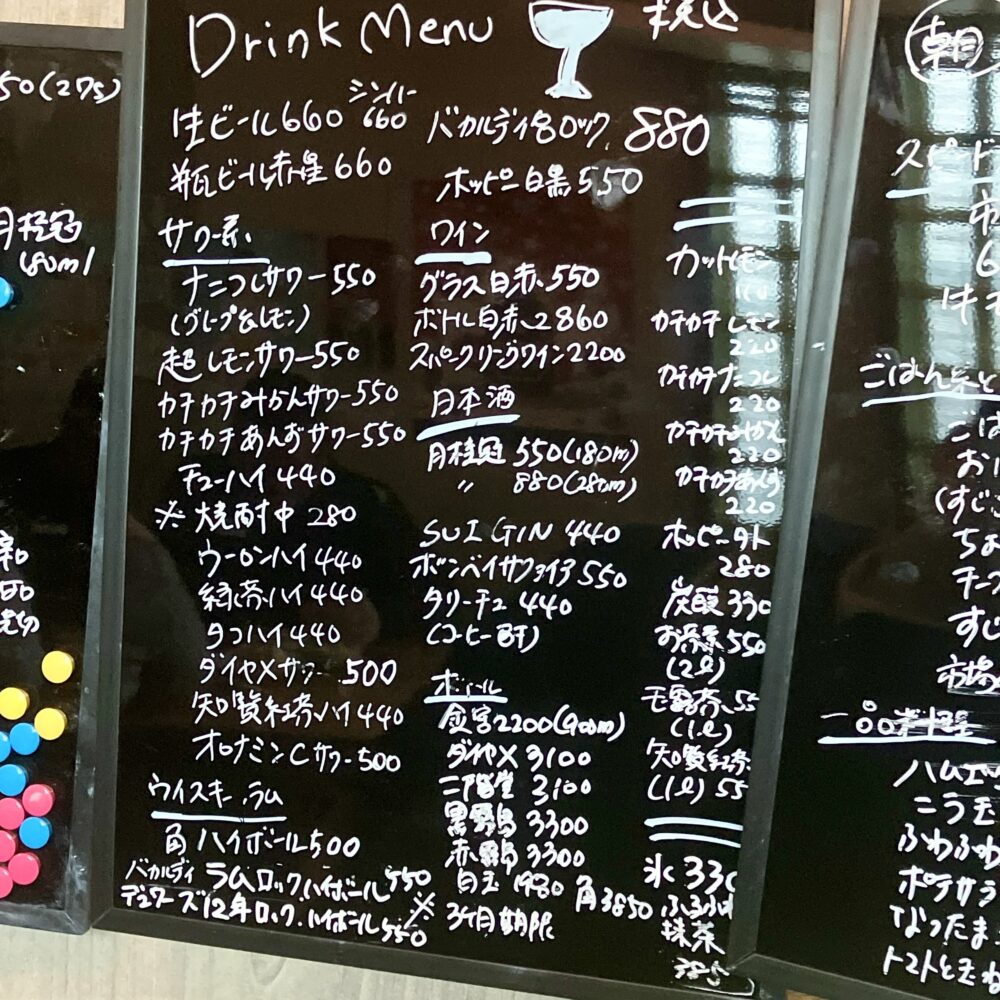 50(27s)
月桂冠
180ml
Drink Menu
税込
生ビール660
シンハー
660
瓶ビール赤星660
バカルディ8ロック 880
ホッピー白黒550
サワー系
ナニコレサワー550
(グレープ&レモン)
超レモンサワー550
カチカチみかんサワー550
カチカチあんずサワー550
チューハイ440
※焼酎中 280
ウーロンハイ440
緑茶ハイ440
タコハイ440
ダイヤメサワー500
知覧紅茶ハイ440
オロナミンCサワー500
ウイスキー、ラム
角ハイボール500
バカルディ ラムロック、ハイボール550
デュワーズ12年ロック、ハイボール550
ワイン
グラス白赤550
ボトル白赤2860
スパークリングワイン2200
日本酒
月桂冠 550(180m)
〃 880(280m)
SUI GIN 440
ボンベイサファイア550
タリーチュ 440
(コーヒー酎)
ボトル
金宮2200(900m)
ダイヤメ3100
二階堂 3100
黒霧島 3300
赤霧島 3300
白玉 1980 角3850
※3ヶ月期限
カットレモン
カチカチレモン
220
カチカチナニコレ
220
カチカチみかん
220
カチカチあんず
220
ホッピー外
280
炭酸330
お茶系550
(2ℓ)
(1ℓ)
知覧紅茶
(1ℓ) 55
氷 330
抹茶
385
朝
スピード
ごはん系と
ごは
おに
(すじこ
ちょ
チーズ
すじ
市場
一品料理
ハムエッ
ニラ玉
ふわふわ
ポテサラ
なったま
トマトと玉ね